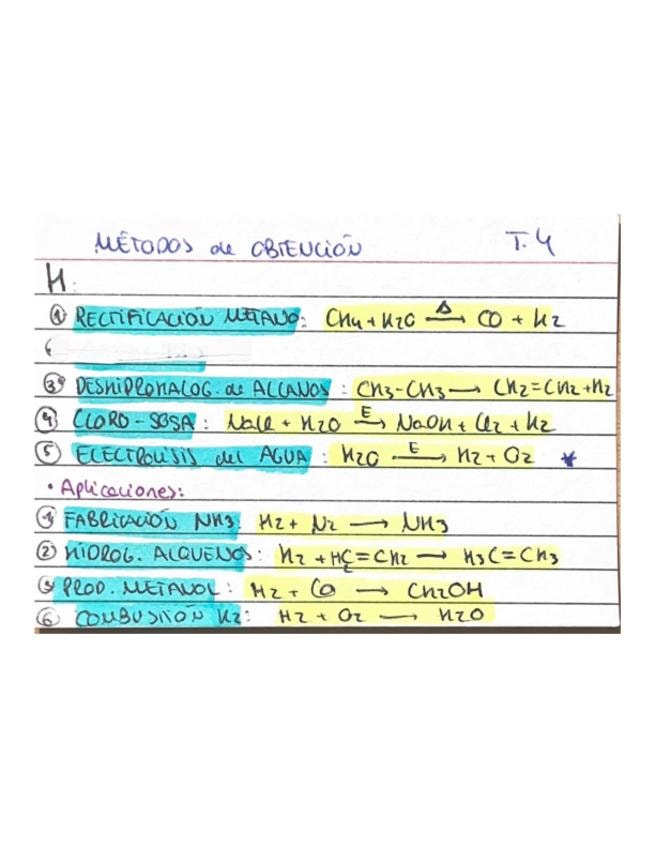 MÉTODOS de OBTENCIÓN T.4
H:
① RECTIFICACIÓN METANO: CH4 + H2O Δ→ CO + H2
③ DESHIDROHALOG. de ALCANOS: CH3-CH3 → CH2=CH2 + H2
④ CLORO-SOSA: NaCl + H2O E→ NaOH + Cl2 + H2
⑤ ELECTROLISIS del AGUA: H2O E→ H2 + O2 *
• Aplicaciones:
① FABRICACIÓN NH3: H2 + N2 → NH3
② HIDROG. ALQUENOS: H2 + H2C=CH2 → H3C=CH3
③ PROD. METANOL: H2 + CO → CH2OH
⑥ COMBUSTIÓN H2: H2 + O2 → H2O